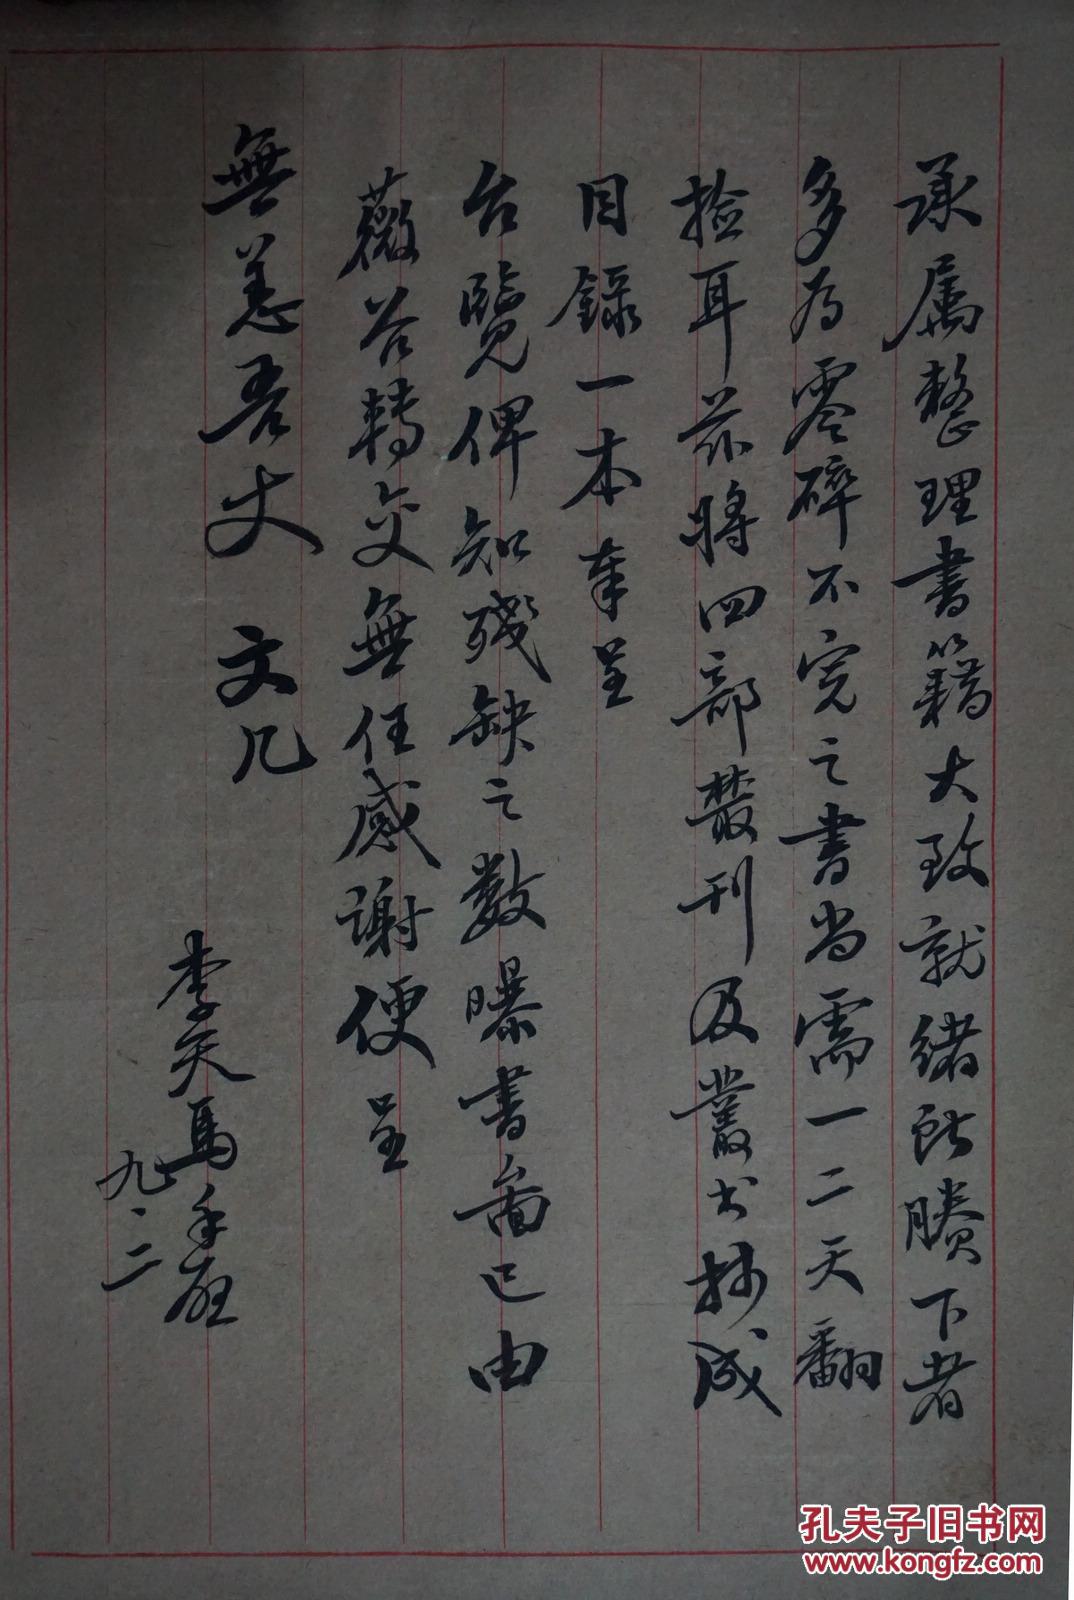 承属整理書籍大致就緒所賸下者
多为零碎不完之書尚需一二天翻
捡耳兹將四部叢刊及叢书抄成
目錄一本奉呈
台覽俾知殘缺之數曝書畣已由
薇谷轉交無任感謝便呈
無恙吾丈 文几
李天馬手啟
九·二
孔夫子旧书网
www.kongfz.com